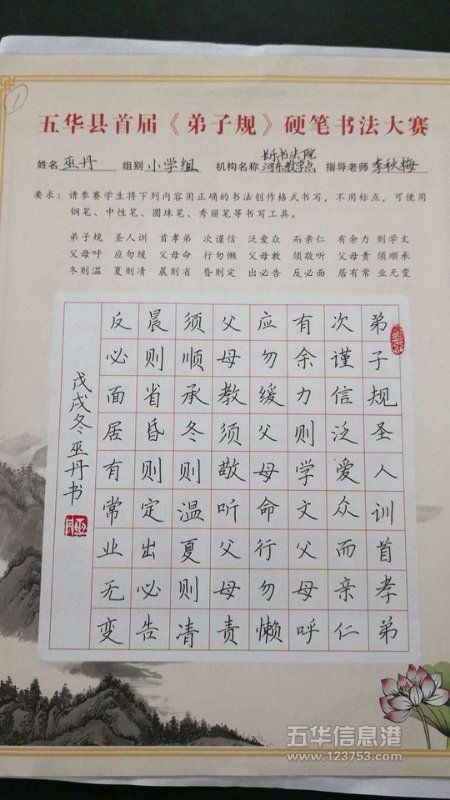 1
五华县首届《弟子规》硬笔书法大赛
书法院
姓名 巫丹 组别 小学组 机构名称 河东教学点 指导老师 李秋梅
要求：请参赛学生将下列内容用正确的书法创作格式书写，不用标点，可使用
钢笔、中性笔、圆珠笔、秀丽笔等书写工具。
弟子规 圣人训 首孝弟 次谨信 泛爱众 而亲仁 有余力 则学文
父母呼 应勿缓 父母命 行勿懒 父母教 须敬听 父母责 须顺承
冬则温 夏则凊 晨则省 昏则定 出必告 反必面 居有常 业无变
弟子规圣人训首孝弟
次谨信泛爱众而亲仁
有余力则学文父母呼
应勿缓父母命行勿懒
父母教须敬听父母责
须顺承冬则温夏则凊
晨则省昏则定出必告
反必面居有常业无变
戊戌冬巫丹书
五华信息港
www.123753.com